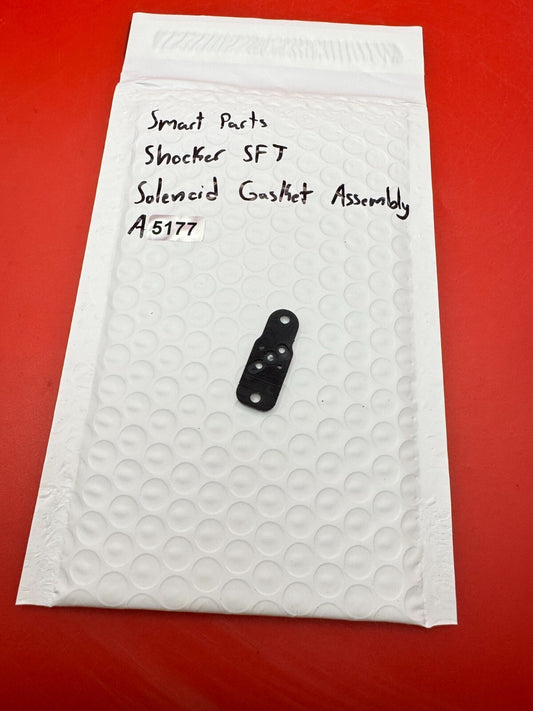 Smart Parts
Shocker SFT
Solenoid Gasket Assembly
A 5177